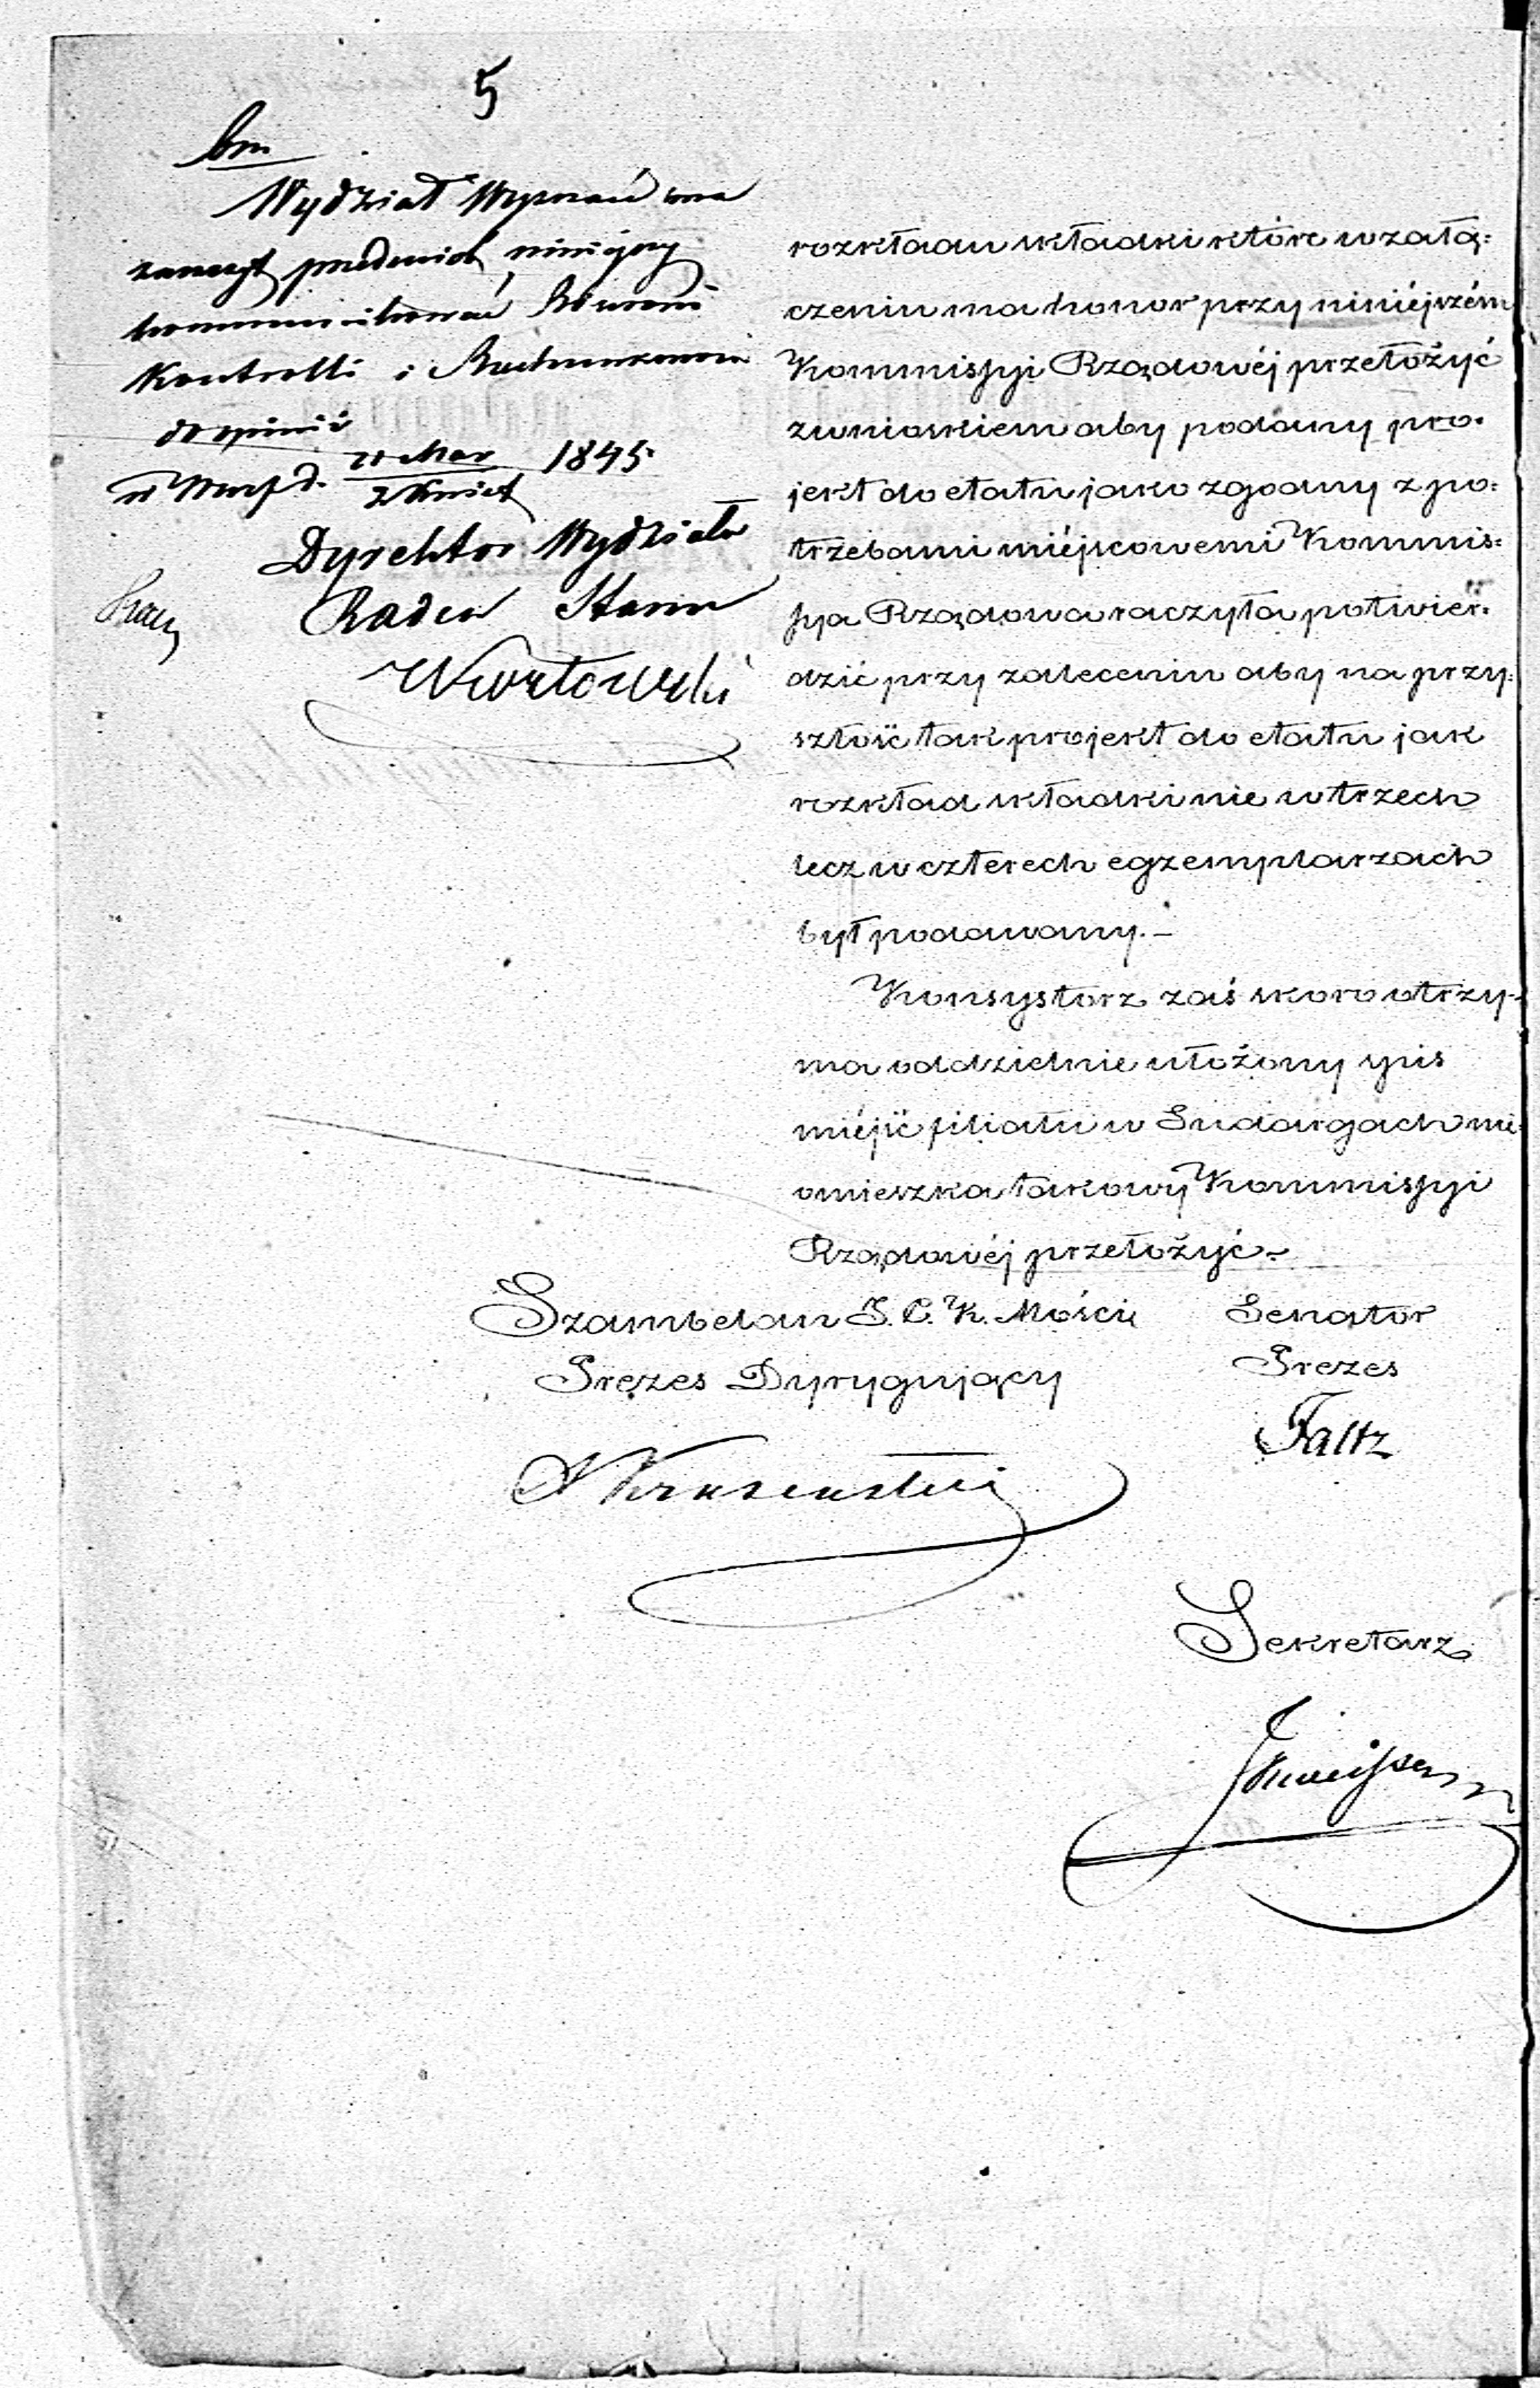 5
Wydział Wyznań ma
zaszczyt przedmiot niniejszy
kommunikować Biurowi
Kontrolli i Rachunkowości
do opinii
w Warsz d. 21 Mar / 2 Kwiet 1845
Dyrektor Wydziału
Radca Stanu
rozkładu składki które w załą:
czeniu ma honor przy niniéjszém
Kommissyi Rządowéj przełożyć
z wnioskiem aby podany pro:
jekt do etatu jako zgodny z po:
trzebami miéjscowemi Kommis:
sya Rządowa raczyła potwier:
dzić przy zaleceniu aby na przy:
szłość tak projekt do etatu jak
rozkład składki nie w trzech
lecz w czterech egzemplarzach
był podawany. –
Konsystorz zaś skoro otrzy-
ma oddzielnie ułożony spis
miéjść filiału w Sudargach nie
omieszka takowy Kommissyi
Rządowéj przełożyć. –
Szambelan J. C. K. Mości
Prezes Dyrygujący
Senator
Prezes
Faltz
Sekretarz